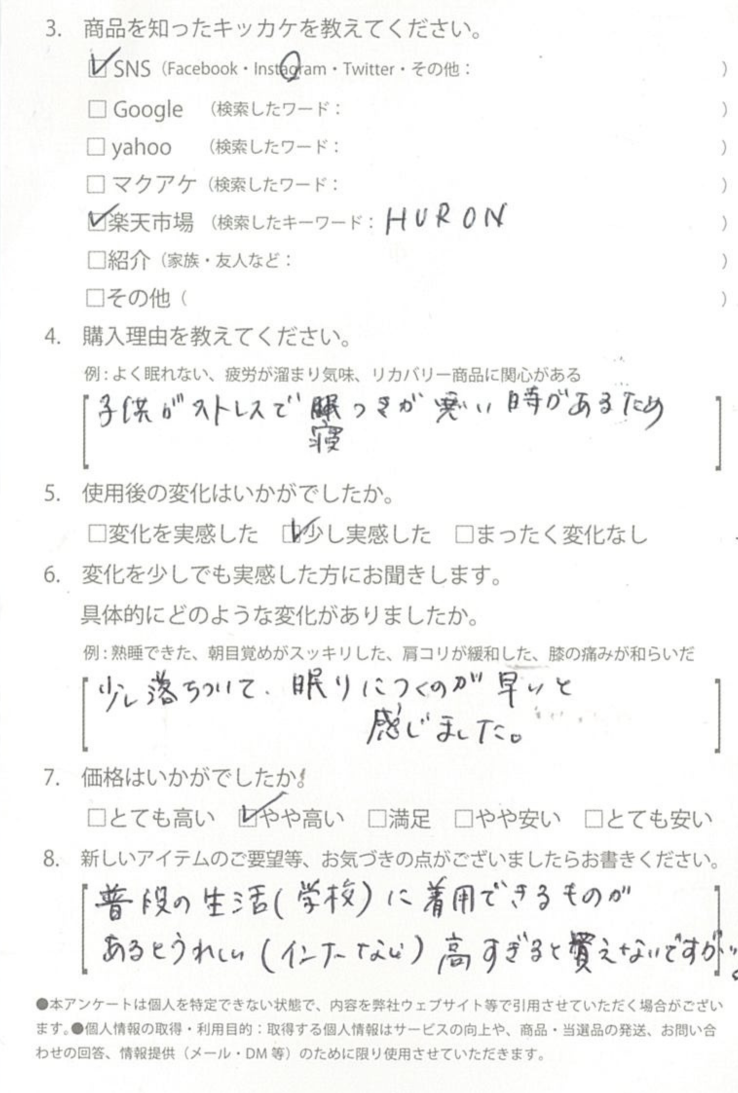 3. 商品を知ったキッカケを教えてください。
☑SNS（Facebook・Instagram・Twitter・その他： ）
□Google （検索したワード： ）
□yahoo （検索したワード： ）
□マクアケ（検索したワード： ）
☑楽天市場（検索したキーワード： HURON ）
□紹介（家族・友人など： ）
□その他（ ）
4. 購入理由を教えてください。
例：よく眠れない、疲労が溜まり気味、リカバリー商品に関心がある
子供がストレスで 眠つきが 悪い 時があるため
寝
5. 使用後の変化はいかがでしたか。
□変化を実感した ☑少し実感した □まったく変化なし
6. 変化を少しでも実感した方にお聞きします。
具体的にどのような変化がありましたか。
例：熟睡できた、朝目覚めがスッキリした、肩コリが緩和した、膝の痛みが和らいだ
少し落ちついて、眠りにつくのが早いと
感じました。
7. 価格はいかがでしたか。
□とても高い ☑やや高い □満足 □やや安い □とても安い
8. 新しいアイテムのご要望等、お気づきの点がございましたらお書きください。
普段の生活(学校)に着用できるものが
あるとうれしい(インナーなど)高すぎると買えないですが…。
●本アンケートは個人を特定できない状態で、内容を弊社ウェブサイト等で引用させていただく場合がござい
ます。●個人情報の取得・利用目的：取得する個人情報はサービスの向上や、商品・当選品の発送、お問い合
わせの回答、情報提供（メール・DM 等）のために限り使用させていただきます。